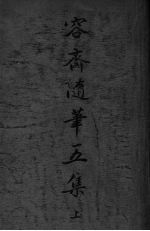 容齋隨筆五集上